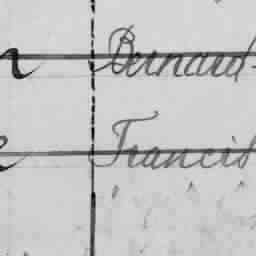 Bernard
Francis